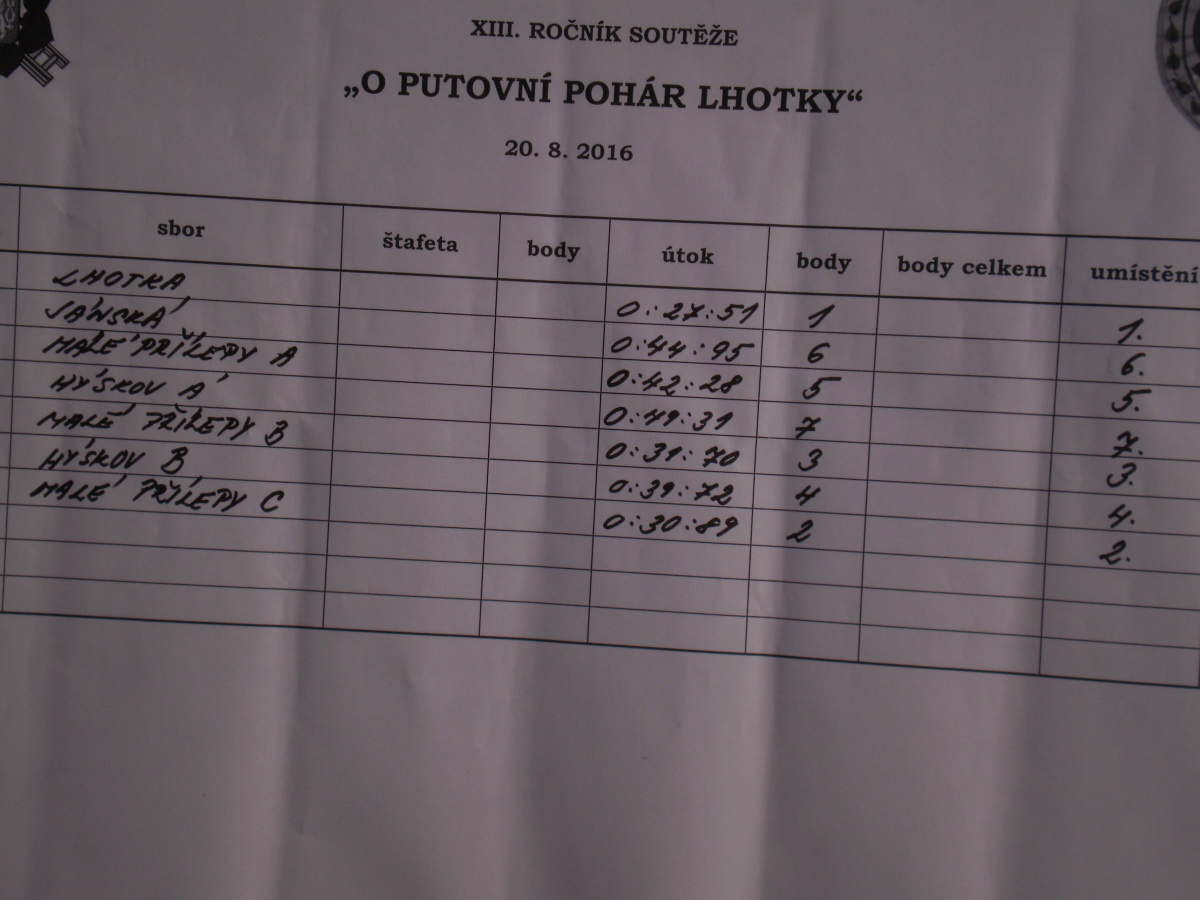 XIII. ROČNÍK SOUTĚŽE
„O PUTOVNÍ POHÁR LHOTKY“
20. 8. 2016
sbor štafeta body útok body body celkem umístění
LHOTKA 0:27:51 1 1.
JÁNSKÁ 0:44:95 6 6.
MALÉ PŘÍLEPY A 0:42:28 5 5.
HÝSKOV A 0:49:31 7 7.
MALÉ PŘÍLEPY B 0:31:70 3 3.
HÝSKOV B 0:39:72 4 4.
MALÉ PŘÍLEPY C 0:30:89 2 2.